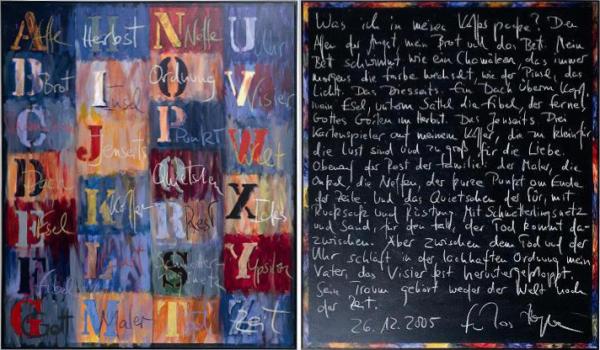 A Affe
B Brot
C
D Dach
E Esel
F Fibel
G Gott
Herbst
I Insel
J Jenseits
K Koffer
L
M Maler
N Neffe
O Ordnung
P Punkt
Quietschen
R Rest
S
T Tod
U Uhr
V Visier
W Welt
X
Y Ypsilon
Zeit
Was ich in meinen Koffer packe? Den
Affen der Angst, mein Brot und das Bet. Mein
Bet schwimmt wie ein Chamäleon, das immer
morgens die Farbe wechselt, wie der Pinsel, das
Licht. Das Diesseits. Ein Dach überm Kopf,
mein Esel, unterm Sattel die Fibel, der ferne
Gottes Garten im Herbst. Das Jenseits. Drei
Kartenspieler auf meinem Koffer, die zu klein für
die Lust sind und zu groß für die Liebe.
Obenauf der Rest der Familie: der Maler, die
die Neffen, der kurze Punkt am Ende
der Zeile. Und das Quietschen der Tür, mit
Rucksack und Rüstung mit Schmetterlingsnetz
und Sand, für den Fall, der Tod kommt da-
zwischen. Aber zwischen dem Tod und der
Uhr schläft in der lachhaften Ordnung mein
Vater, das Visier fest heruntergeklappt.
Sein Traum gehört weder der Welt noch
der Zeit.
26.12.2005